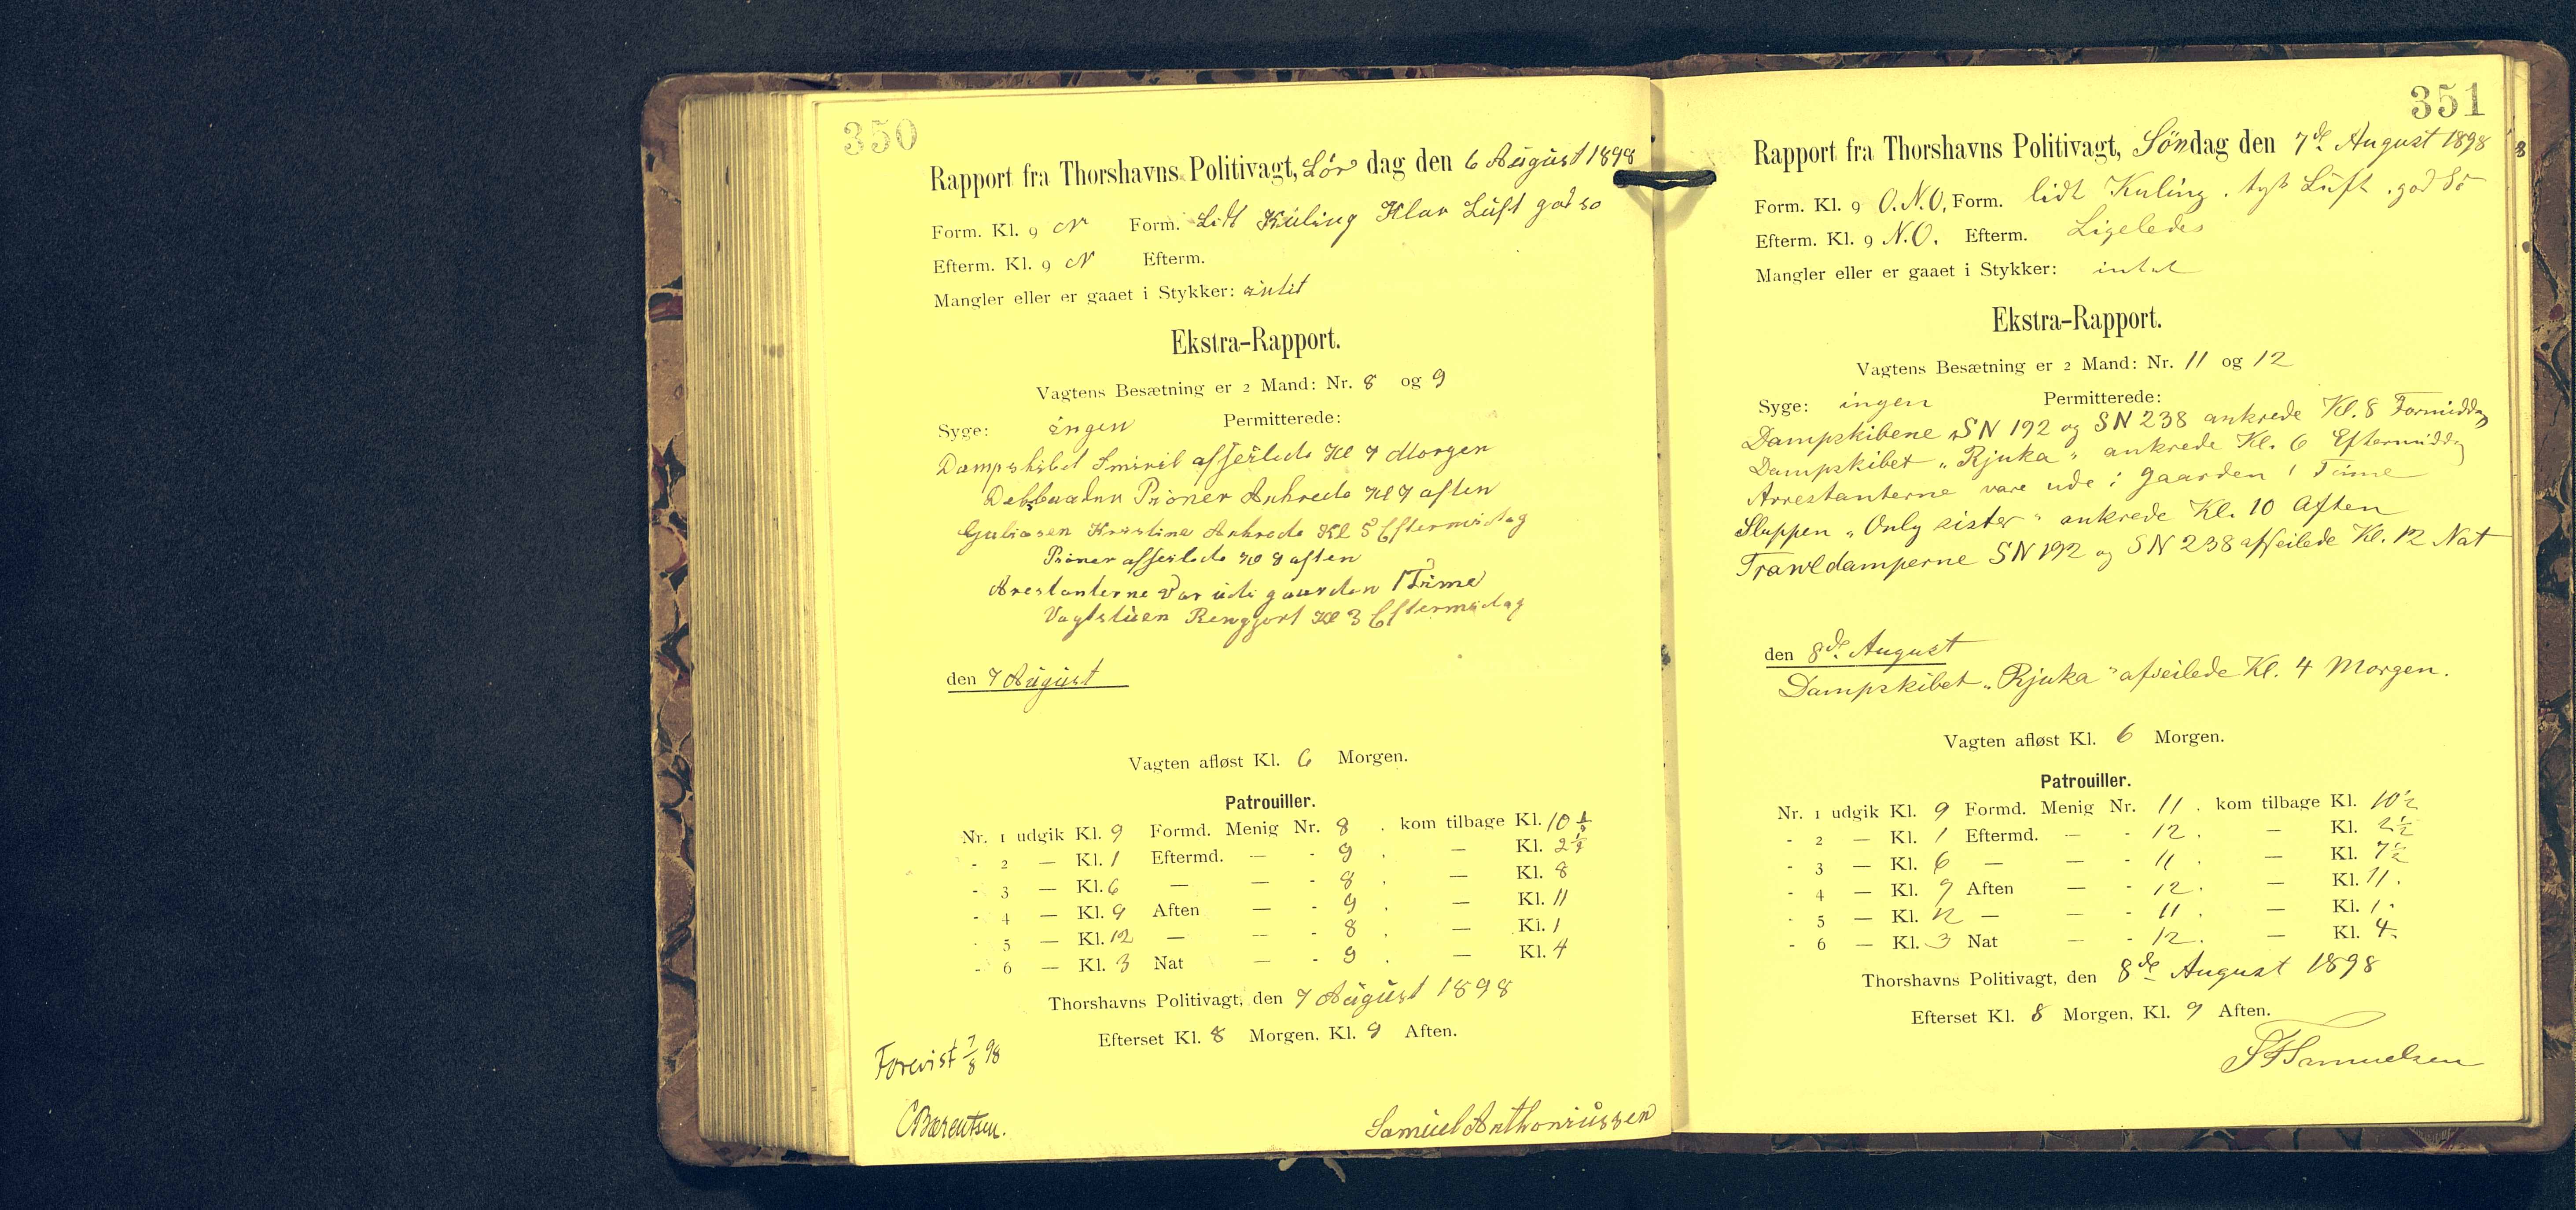 350
Rapport fra Thorshavns Politivagt, Lør dag den 6 August 1898
Form. Kl. 9 N Form. Lidt Kuling Klar Luft god so
Efterm. Kl. 9 N Efterm.
Mangler eller er gaaet i Stykker: intit
Ekstra-Rapport.
Vagtens Besætning er 2 Mand: Nr. 8 og 9
Syge: ingen Permitterede:
Dampskibet Smiril afseilede Kl 7 Morgen
Prioner Ankrede Kl 7 aften
Galiasen Kristine Ankrede Kl 5 Eftermidag
Prioner afseilede Kl 9 aften
Arestanterne var ude gaarden 1 Time
Vagtstuen Rengjort Kl 3 Eftermidag
den 7 August
Vagten afløst Kl. 6 Morgen.
Patrouiller.
Nr. 1 udgik Kl. 9 Formd. Menig Nr. 8 . kom tilbage Kl. 10 ½
- 2 — Kl. 1 Eftermd. — - 9 . — Kl. 2 ½
- 3 — Kl. 6 — — - 8 . — Kl. 8
- 4 — Kl. 9 Aften — - 9 . — Kl. 11
- 5 — Kl. 12 — — - 8 . — Kl. 1
- 6 — Kl. 3 Nat — - 9 . — Kl. 4
Thorshavns Politivagt, den 7 August 1898
Efterset Kl. 8 Morgen, Kl. 9 Aften.
Forevist 7/8 98
CBærentsen.
Samuel Anthoniussen
351
Rapport fra Thorshavns Politivagt, Söndag den 7de August 1898
Form. Kl. 9 O.N.O, Form. lidt Kuling. tyk Luft. god Sö
Efterm. Kl. 9 N.O. Efterm. Ligeledes
Mangler eller er gaaet i Stykker: intet
Ekstra-Rapport.
Vagtens Besætning er 2 Mand: Nr. 11 og 12
Syge: ingen Permitterede:
Dampskibene SN 192 og SN 238 ankrede Kl. 8 Formiddag
Dampskibet „Rjuka" ankrede Kl. 6 Eftermiddag
Arrestanterne vare ude i gaarden 1 Time
Sluppen „Only sister" ankrede Kl. 10 Aften
Trawldamperne SN 192 og SN 238 afseilede Kl. 12 Nat
den 8de August
Dampskibet „Rjuka" afseilede Kl. 4 Morgen.
Vagten afløst Kl. 6 Morgen.
Patrouiller.
Nr. 1 udgik Kl. 9 Formd. Menig Nr. 11 . kom tilbage Kl. 10½
- 2 — Kl. 1 Eftermd. — - 12 . — Kl. 2½
- 3 — Kl. 6 — — - 11 . — Kl. 7½
- 4 — Kl. 9 Aften — - 12 . — Kl. 11.
- 5 — Kl. 12 — — - 11 . — Kl. 1.
- 6 — Kl. 3 Nat — - 12 . — Kl. 4
Thorshavns Politivagt, den 8de August 1898
Efterset Kl. 8 Morgen, Kl. 9 Aften.
SFSamuelsen